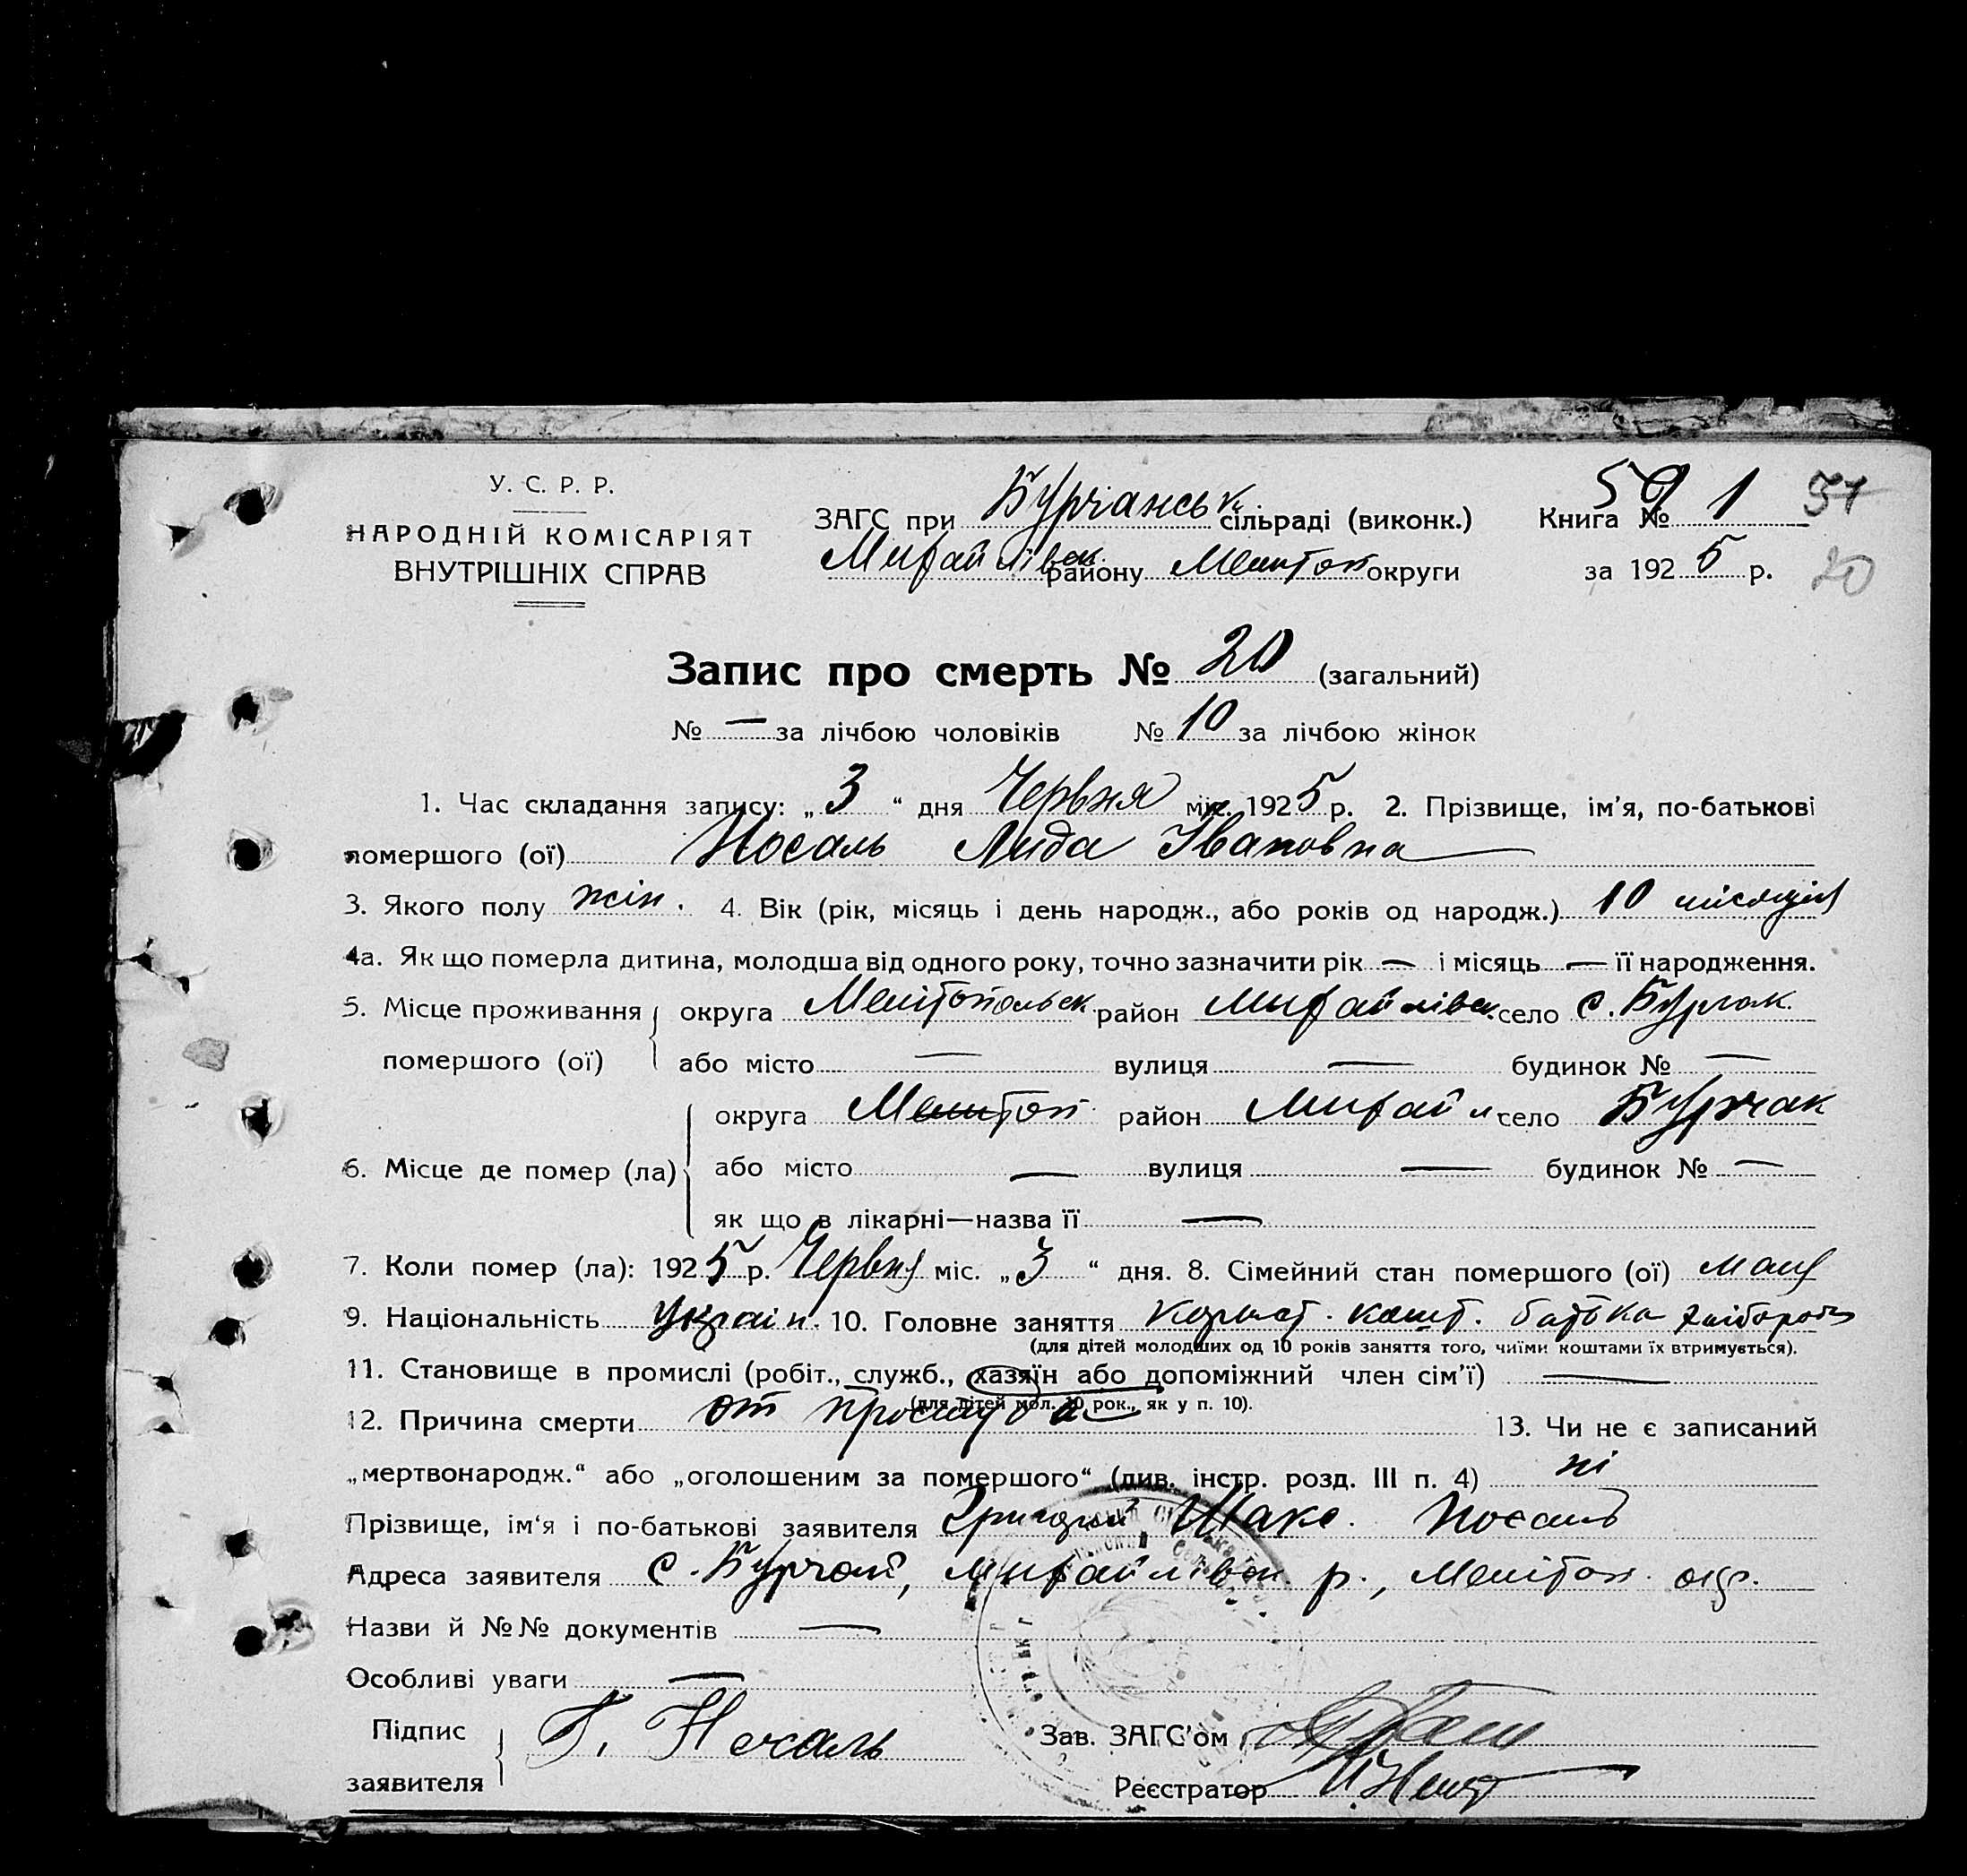 У. С. Р. Р.
НАРОДНІЙ КОМІСАРІЯТ
ВНУТРІШНІХ СПРАВ
ЗАГС при Бурчанськ сільраді (виконк.)
Михайлівськ. району Мелитоп округи
Книга № 1
59 57
за 1925 р. 20
Запис про смерть № 20 (загальний)
№ — за лічбою чоловіків № 10 за лічбою жінок
1. Час складання запису: „3“ дня Червня міс. 1925 р. 2. Прізвище, ім'я, по-батькові
помершого (ої) Носаль Лида Івановна
3. Якого полу жін. 4. Вік (рік, місяць і день народж., або років од народж.) 10 місяців
4а. Як що померла дитина, молодша від одного року, точно зазначити рік — і місяць — її народження.
5. Місце проживання помершого (ої) округа Мелітопольськ. район Михайлівськ. село с. Бурчак.
або місто — вулиця — будинок № —
6. Місце де помер (ла) округа Мелитоп. район Михайл село Бурчак
або місто — вулиця — будинок № —
як що в лікарні—назва її —
7. Коли помер (ла): 1925 р. Червня міс. „3“ дня. 8. Сімейний стан помершого (ої) мала
9. Національність Україн. 10. Головне заняття корист. кошт. батька хлібороба
(для дітей молодших од 10 років заняття того, чиїми коштами їх втримується).
11. Становище в промислі (робіт., служб., хазяїн або допоміжний член сім'ї) —
(для дітей мол. 10 рок., як у п. 10).
12. Причина смерти от простуда 13. Чи не є записаний
„мертвонародж.“ або „оголошеним за помершого“ (див. інстр. розд. III п. 4) ні
Прізвище, ім'я і по-батькові заявителя Григорій Макс. Носаль
Адреса заявителя с. Бурчак, Михайлівськ р., Мелітоп. окр.
Назви й №№ документів —
Особливі уваги —
Підпис заявителя Г. Носаль
Зав. ЗАГС'ом
Реєстратор